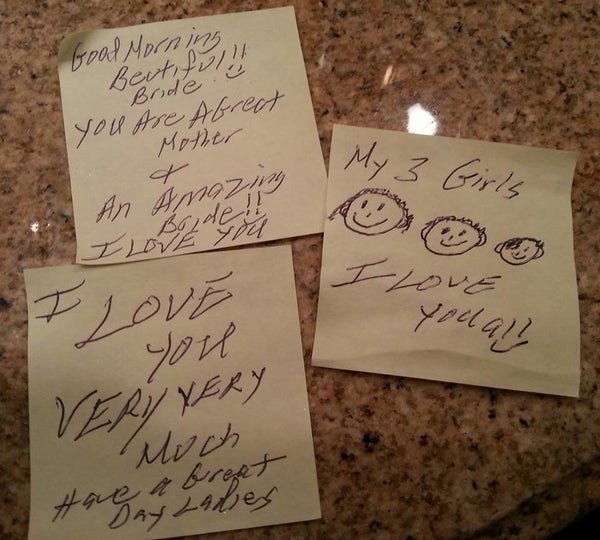 Good Morning
Beutiful!!
Bride
You Are A Great
Mother
&
An Amazing
Bride!!
I LOVE You
My 3 Girls
I LOVE
You all
I
LOVE
YOU
VERY VERY
Much
Have a Great
Day Ladies